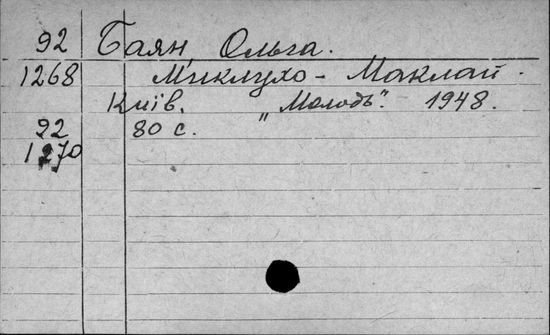 92 Баян, Ольга.
1268 Миклухо-Маклай.
Київ. „Молодь". 1948.
92 80 с.
1270